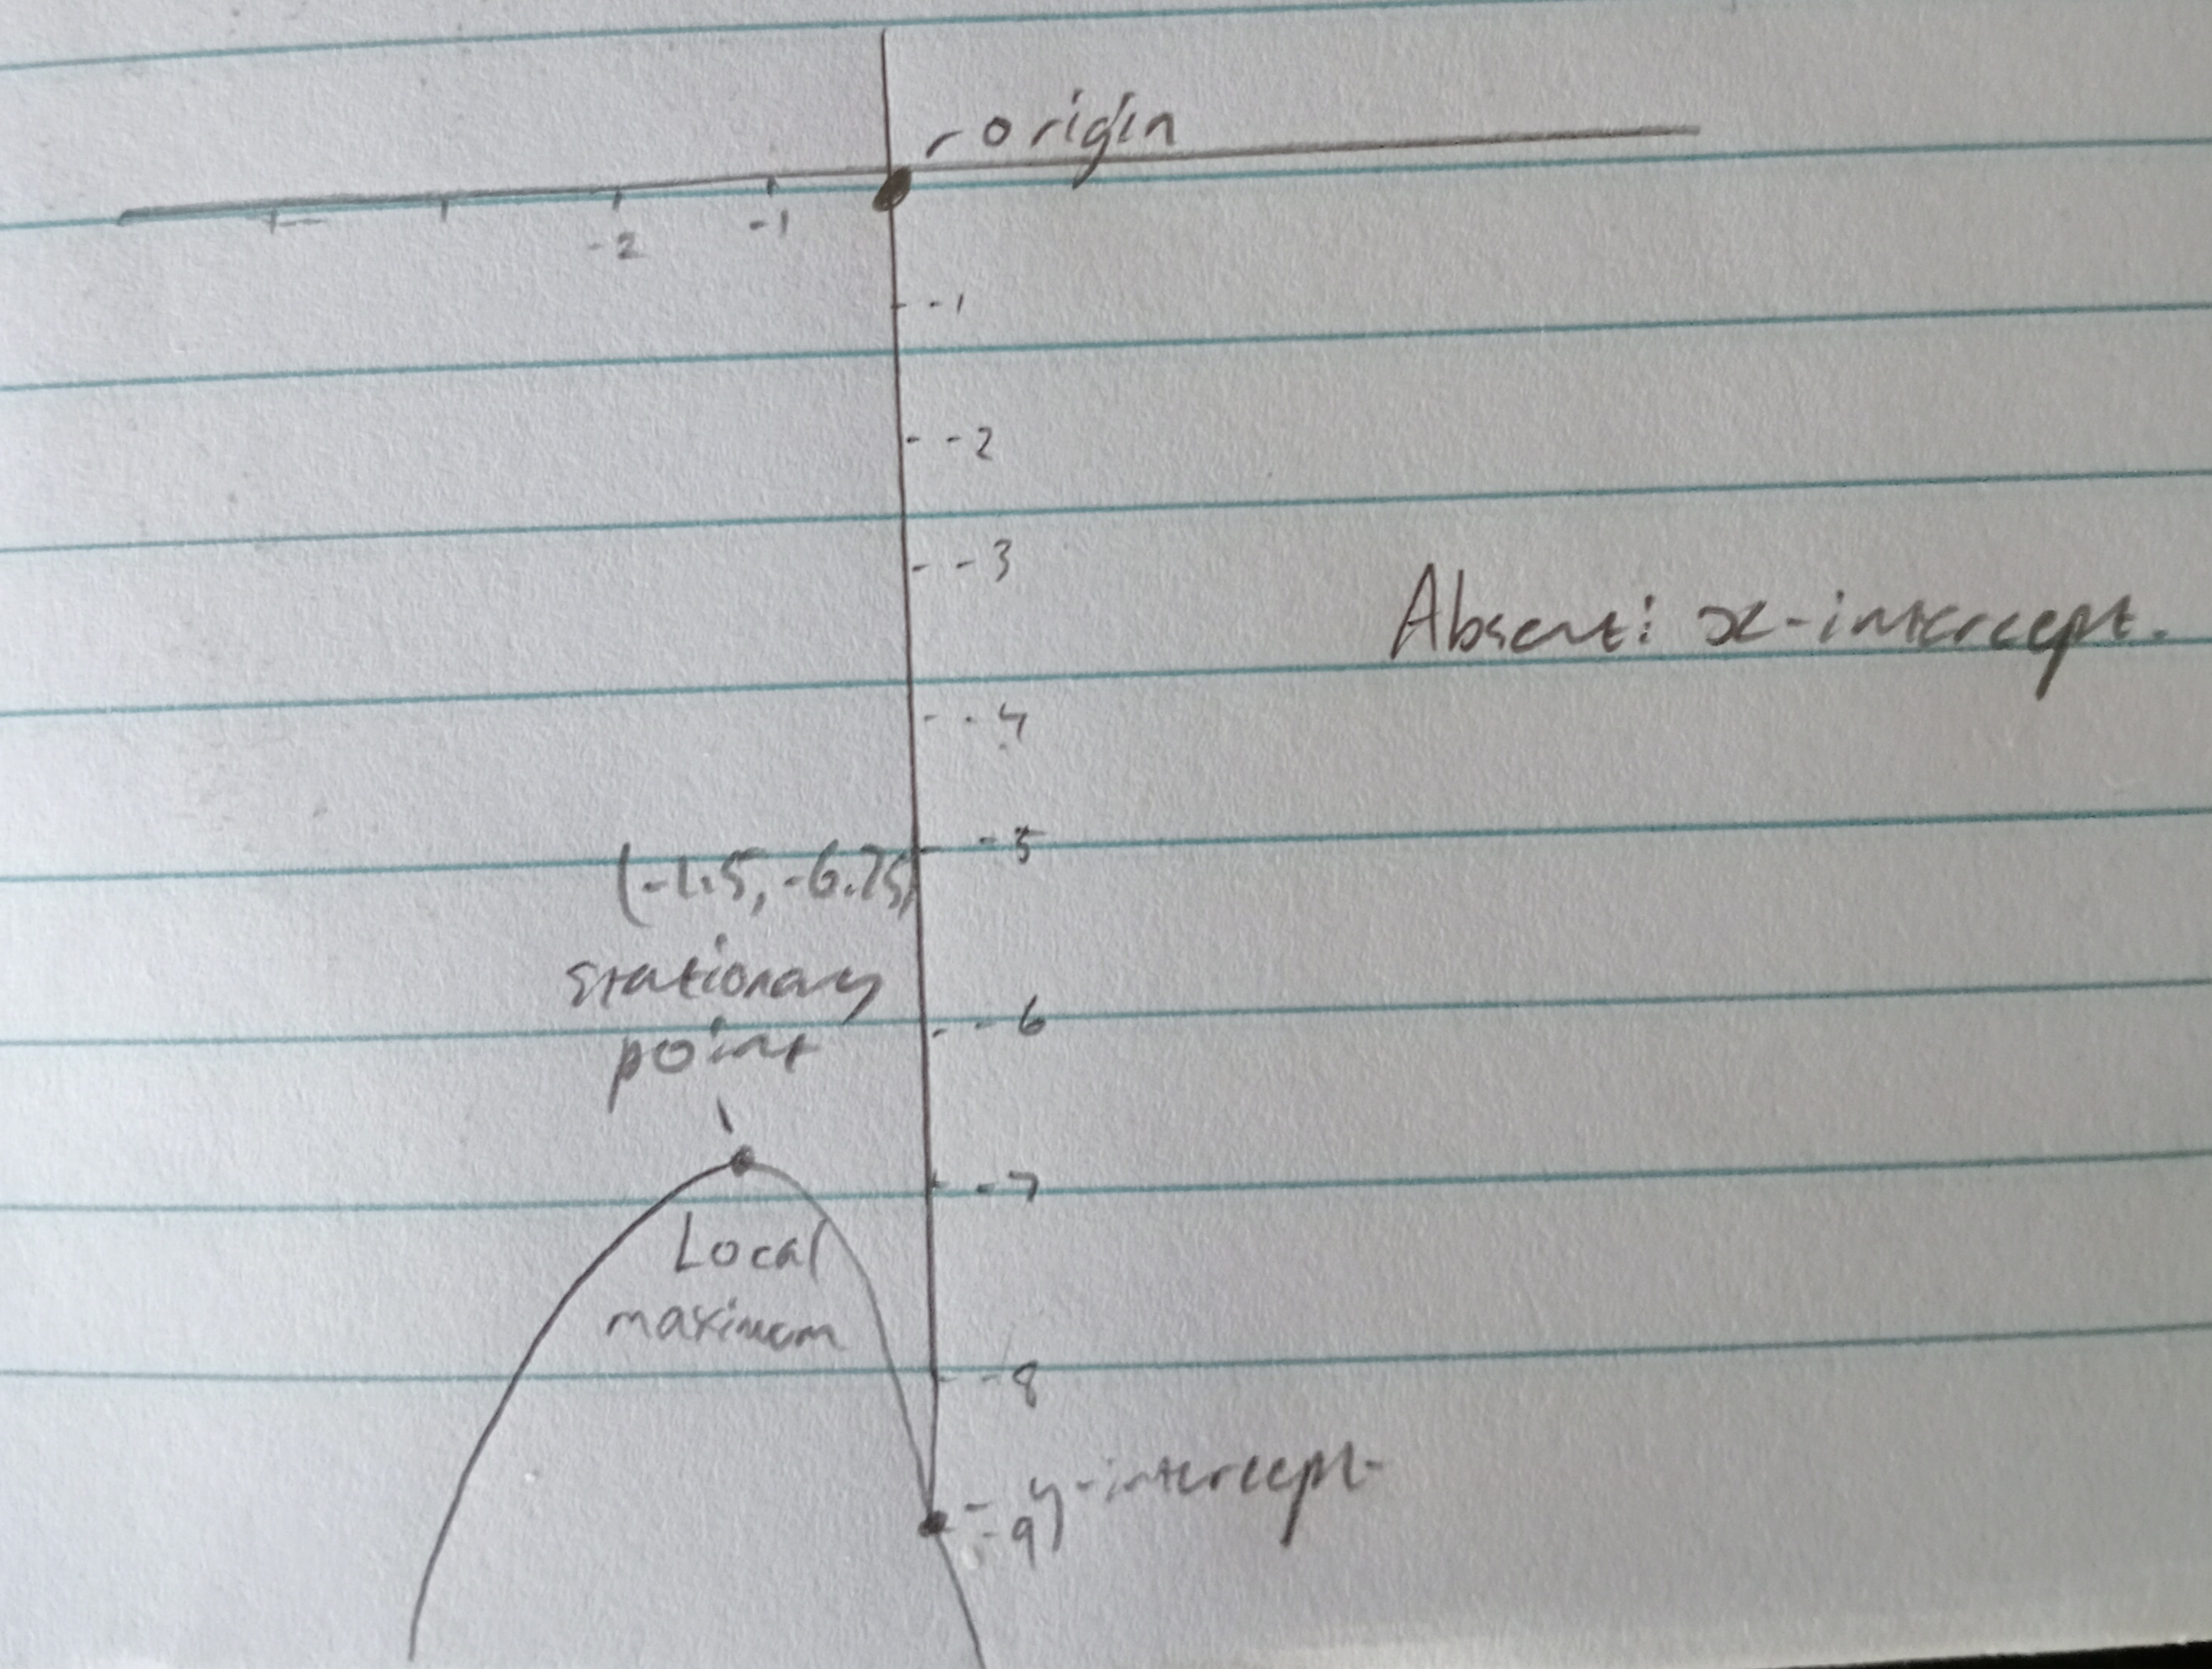 origin
-2 -1
-1
-2
-3
Absent: x-intercept.
-4
-5
(-1.5, -6.75)
stationary
point
-6
-7
Local
maximum
-8
y-intercept
-9